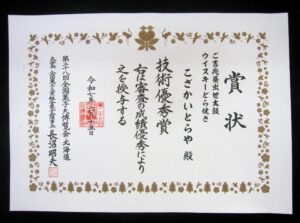 賞状
ご吉兆葵出世太鼓
ウイスキーどら焼き
こざかいとらや 殿
技術優秀賞
右は審査の成績優秀により
之を授与する
令和七年六月十五日
第二十八回全国菓子大博覧会・北海道
会長 長沼昭夫